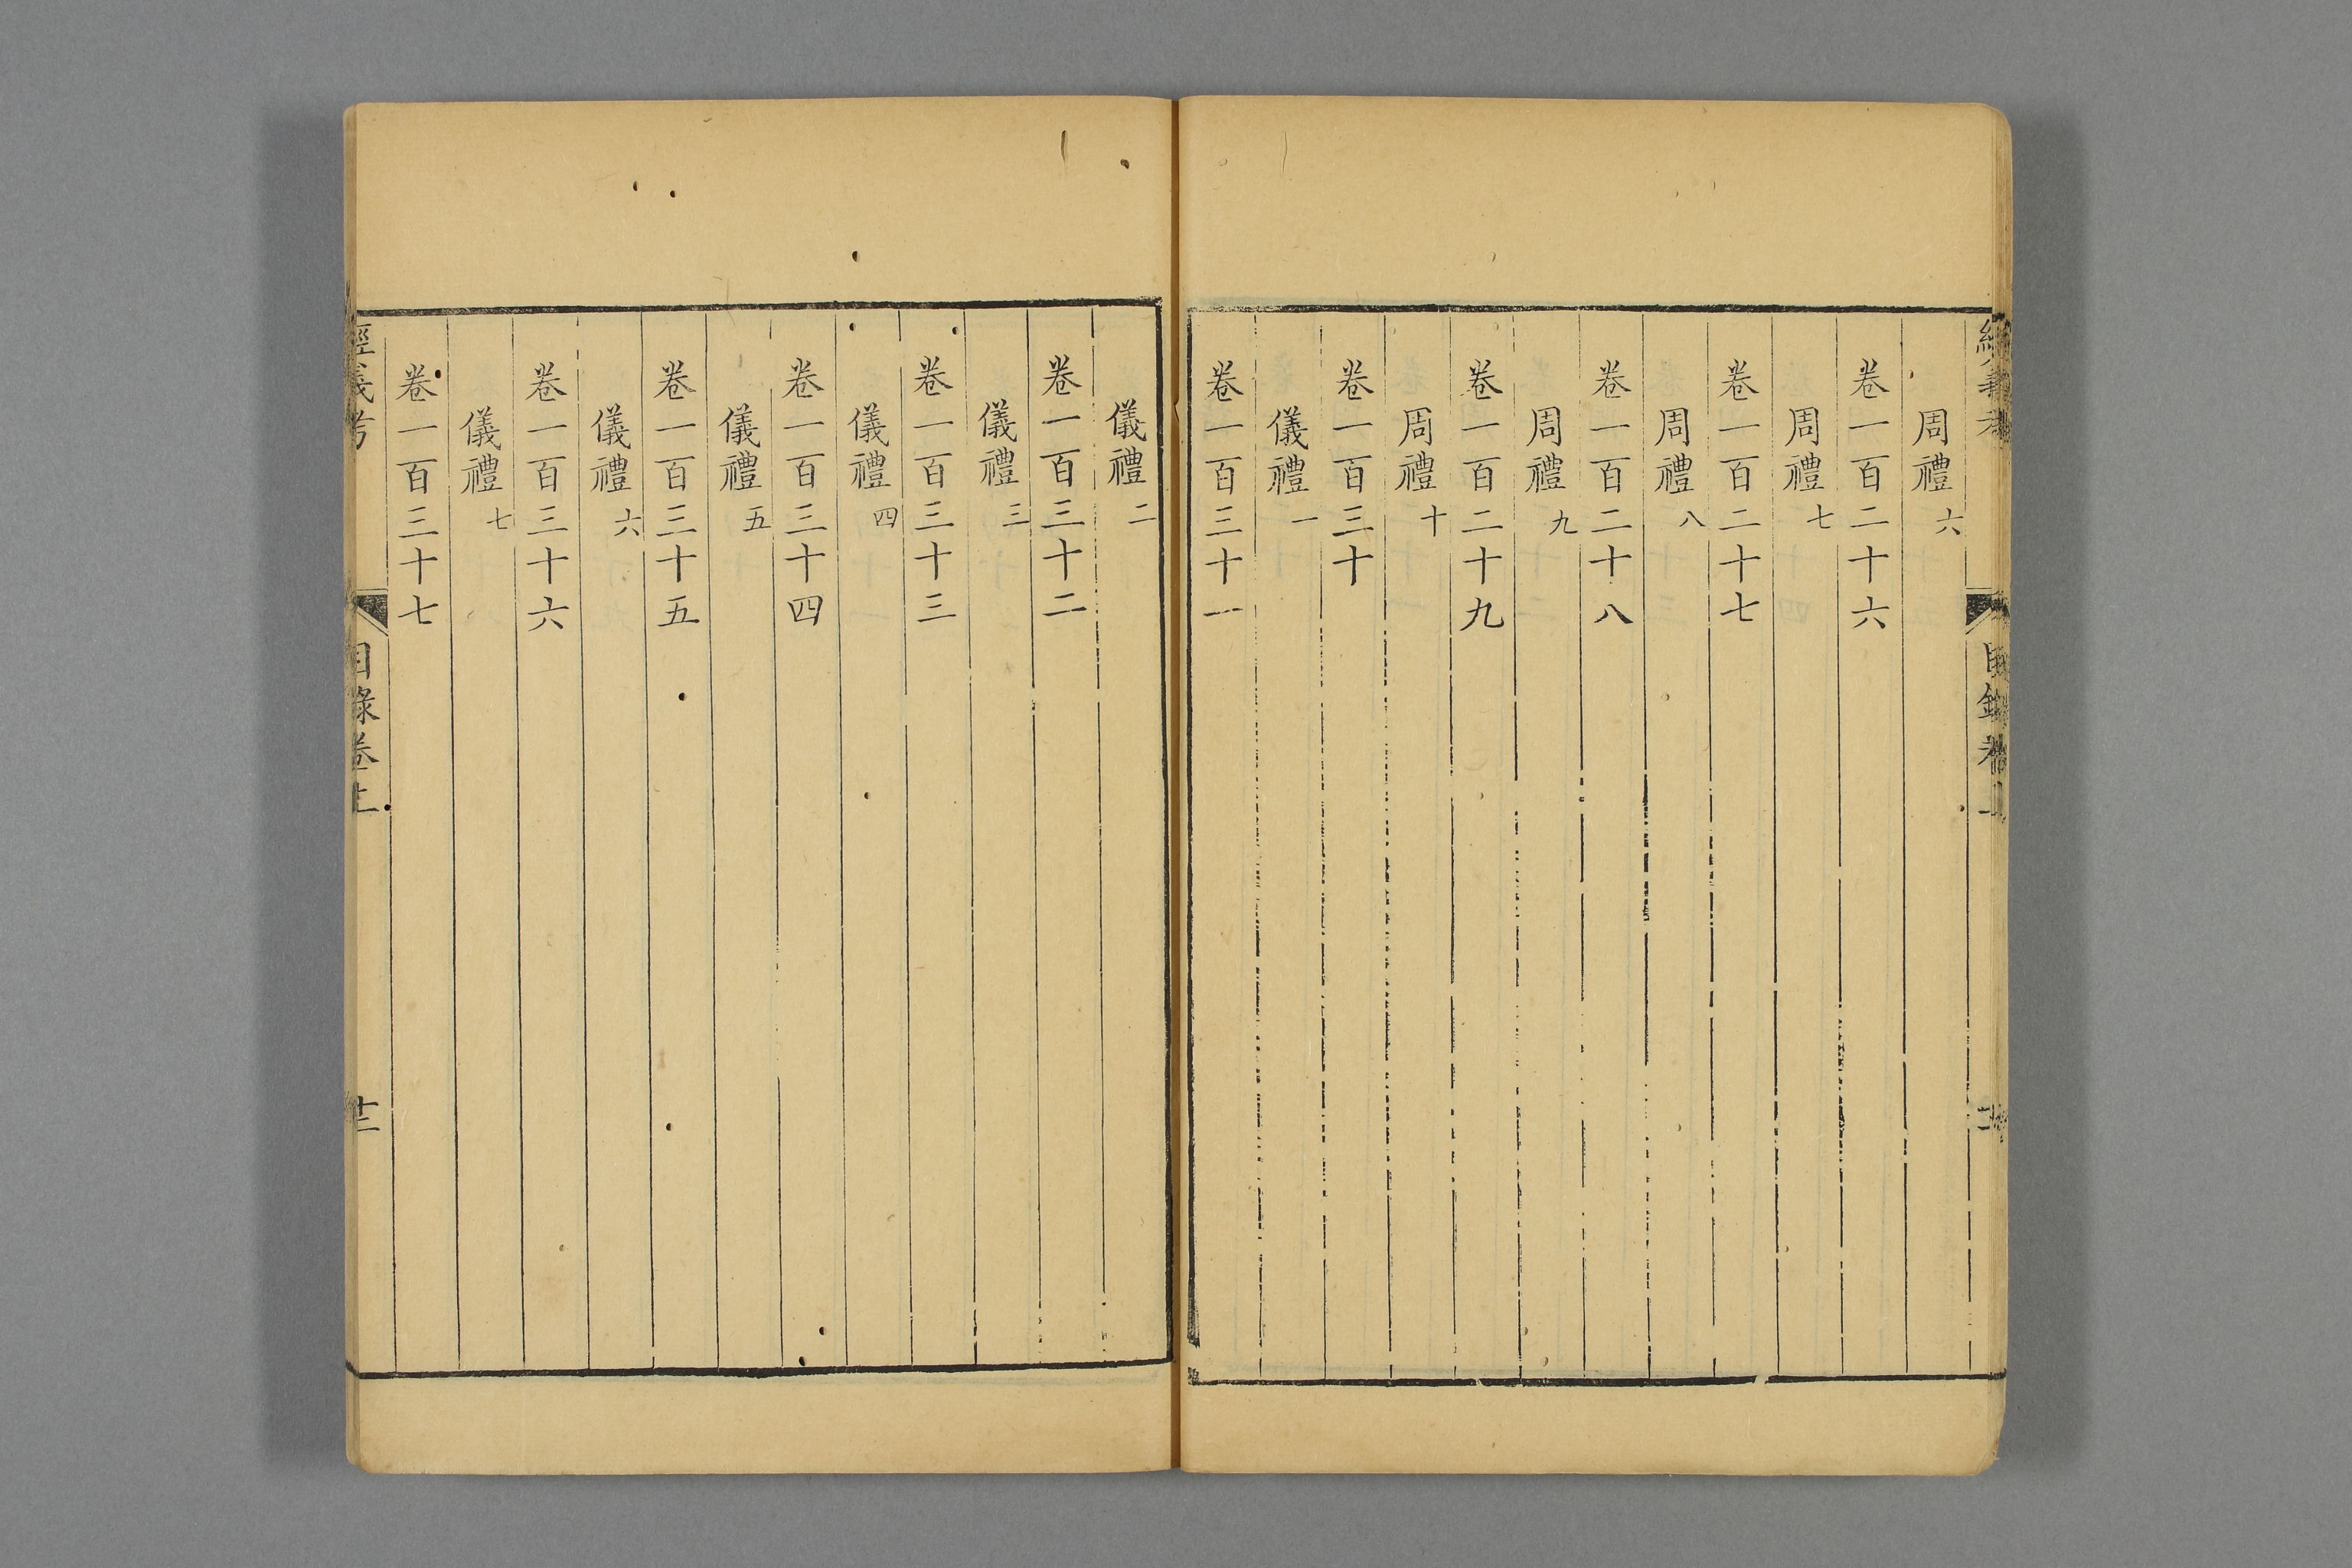 周禮六
卷一百二十六
周禮七
卷一百二十七
周禮八
卷一百二十八
周禮九
卷一百二十九
周禮十
卷一百三十
儀禮一
卷一百三十一
儀禮二
卷一百三十二
儀禮三
卷一百三十三
儀禮四
卷一百三十四
儀禮五
卷一百三十五
儀禮六
卷一百三十六
儀禮七
卷一百三十七
經義考
目錄卷上